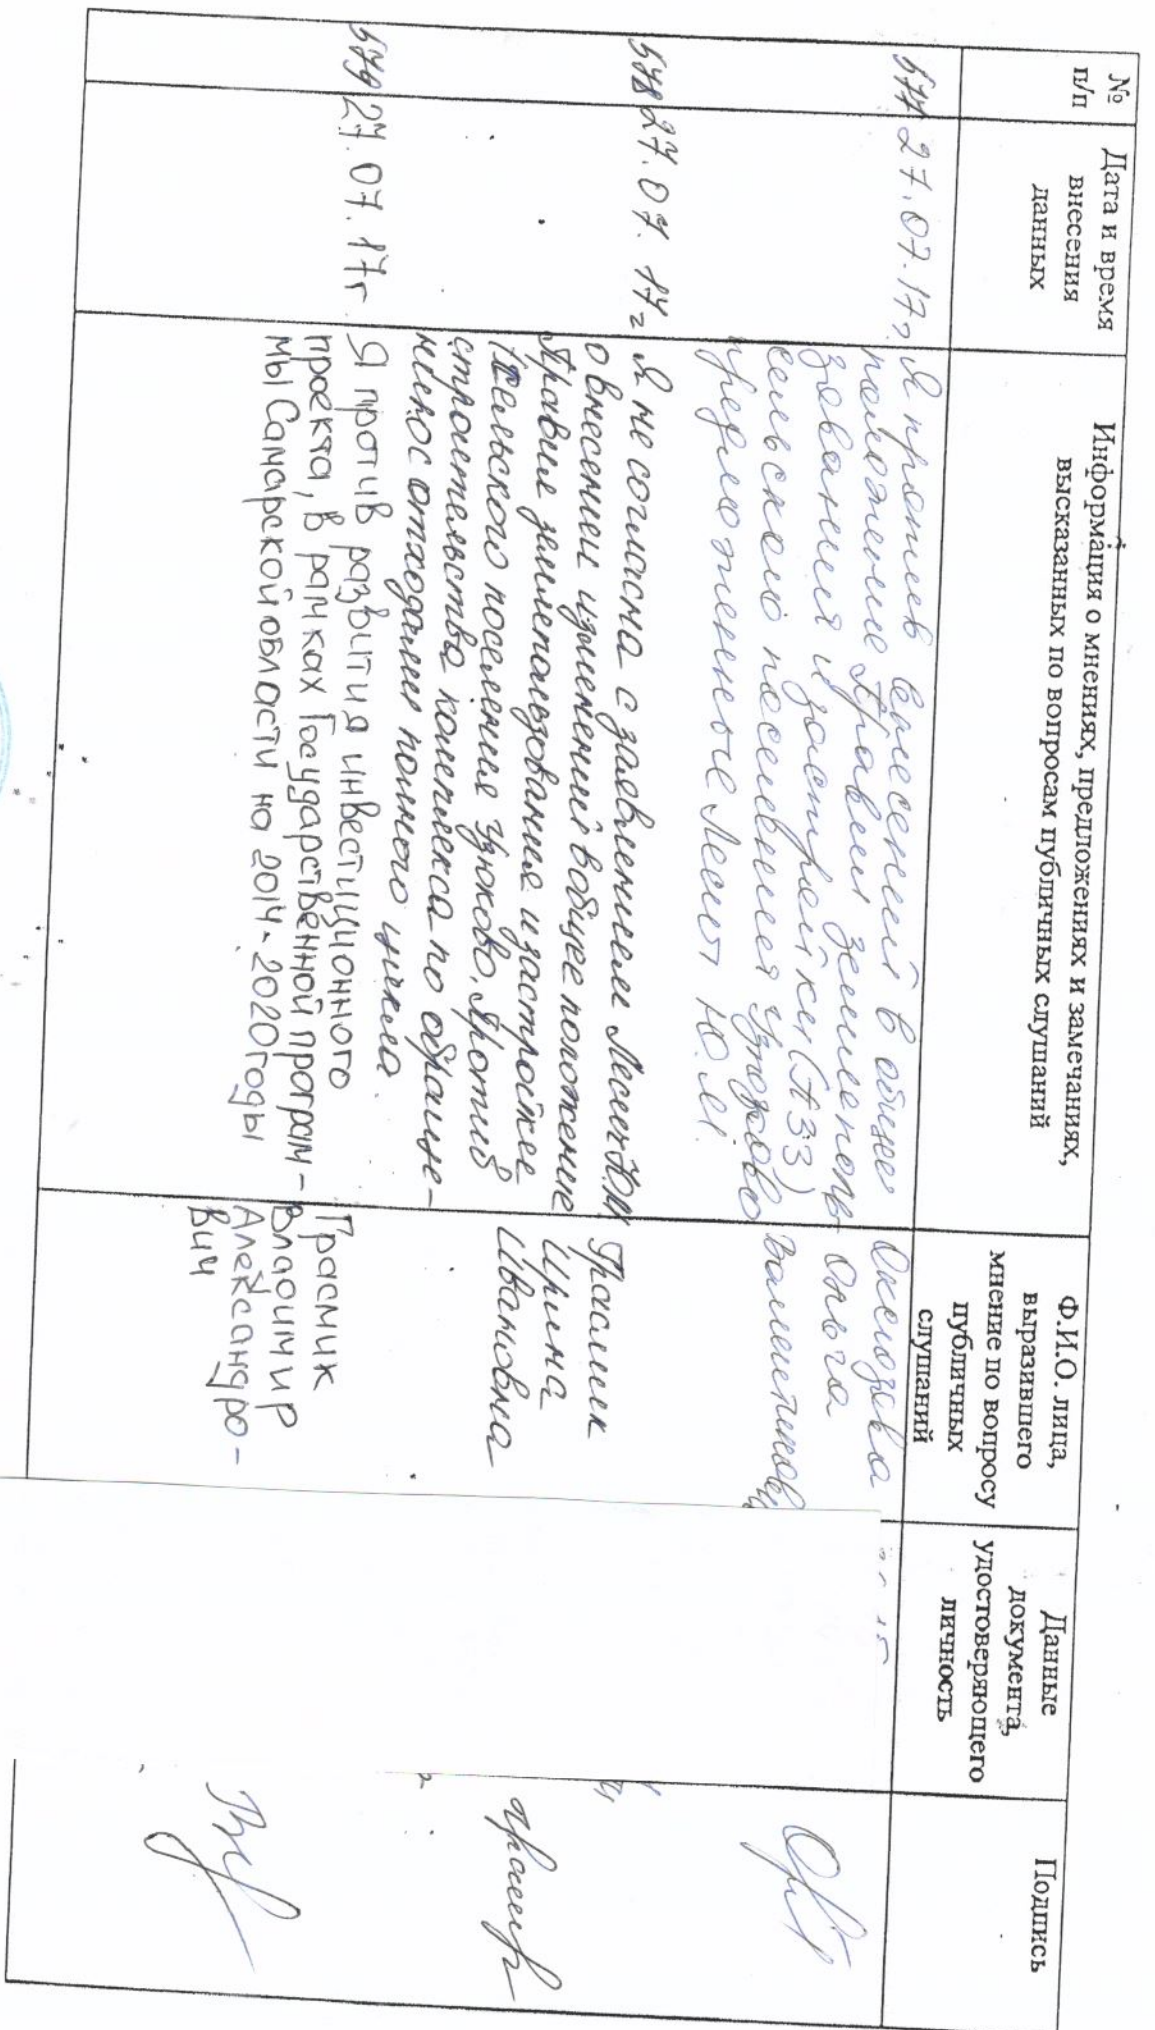 №
п/п
Дата и время
внесения
данных
Информация о мнениях, предложениях и замечаниях,
высказанных по вопросам публичных слушаний
Ф.И.О. лица,
выразившего
мнение по вопросу
публичных
слушаний
Данные
документа,
удостоверяющего
личность
Подпись
577
27.07.17г
Я против внесений в общее
положение Правил землеполь
зования и застройки (ПЗЗ)
сельского поселения Узюково
предложенные Лесит Ю.М.
Ольга
Валентинов
578
27.07.17г
Я не согласна с заявлением Ю.М
о внесении изменений в общее положение
Правил землепользование и застройке
сельского поселения Узюково. Против
строительства комплекса по обраще-
нию с отходами полного цикла
Грасмик
Ирина
Ивановна
579
27.07.17г
Я против развития инвестиционного
проекта, в рамках Государственной програм-
мы Самарской области на 2014-2020 годы
Грасмик
Владимир
Александро-
вич